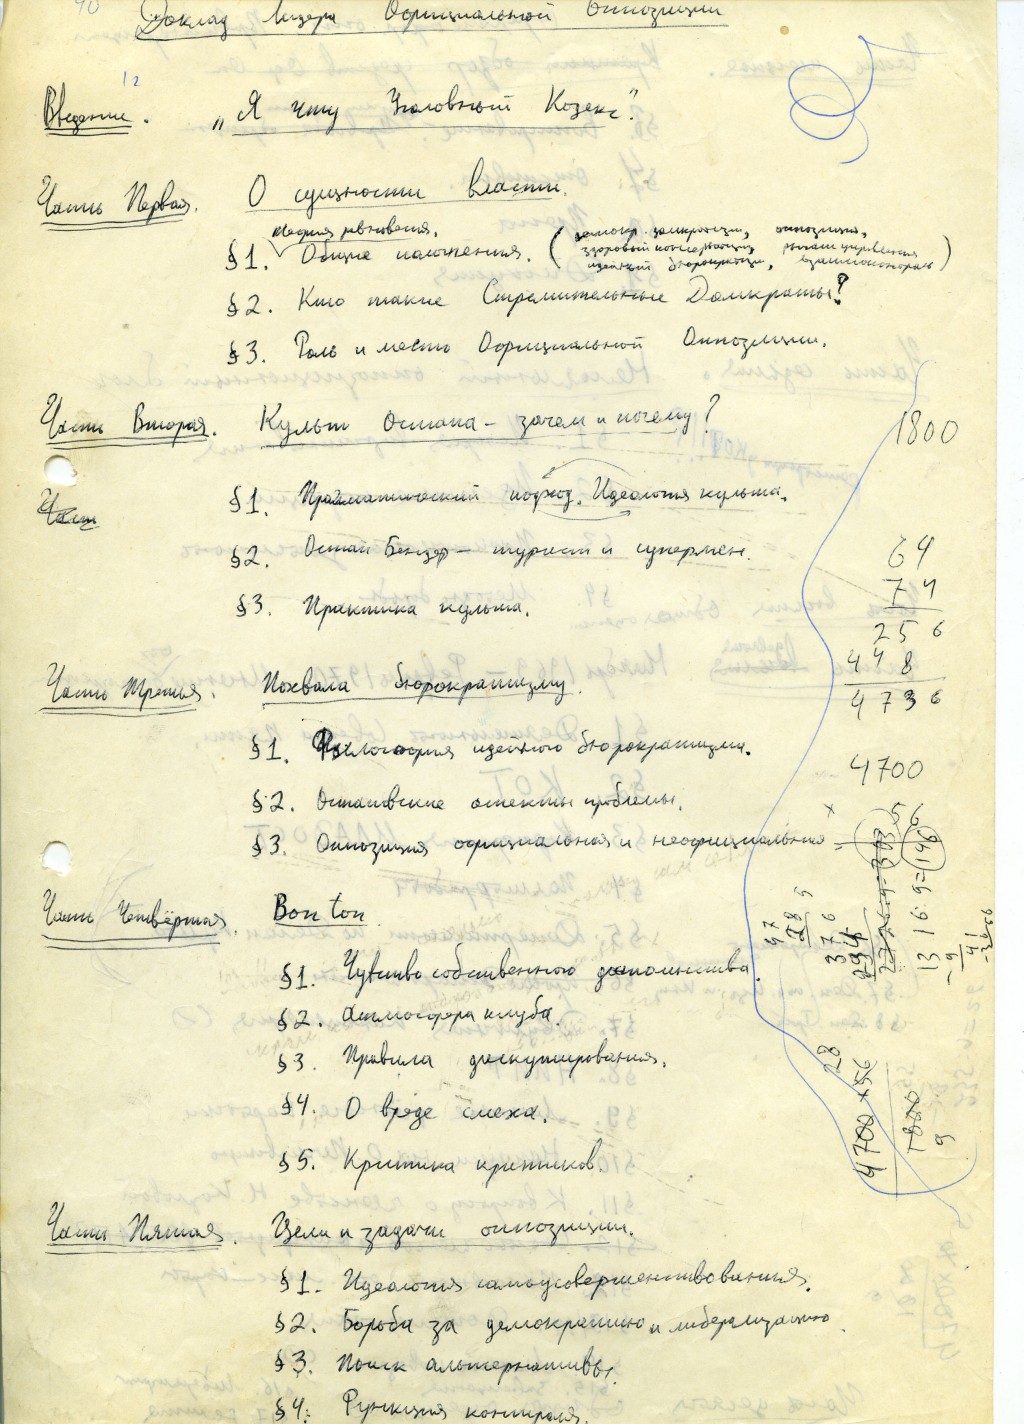 40
Доклад Лидера Официальной Оппозиции
12
Введение. „Я чту Уголовный Кодекс".
Часть Первая. О сущности власти.
теория равновесия.
§1. Общие положения. (демокр. оппозиция,
здоровый консерватизм,
идейный бюрократизм, взаимоконтроль)
§2. Кто такие Стремительные Домкраты?
§3. Роль и место Официальной Оппозиции.
Часть Вторая. Культ Остапа – зачем и почему?
1800
Част
§1. Прагматический подход. Идеология культа.
§2. Остап Бендер – турист и супермен.
§3. Практика культа.
64
74
256
448
4736
Часть Третья. Похвала бюрократизму.
§1. Философия идейного бюрократизма.
4700
§2. Остаповские аспекты проблемы.
§3. Оппозиция официальная и неофициальная
Часть Четвёртая. Bon ton.
§1. Чувство собственного достоинства.
§2. Атмосфера клуба.
§3. Правила дискутирования.
§4. О вреде смеха.
§5. Критика критиков.
Часть Пятая. Цели и задачи оппозиции.
§1. Идеология самоусовершенствования.
§2. Борьба за демократию и либерализацию.
§3. Поиск альтернативы.
§4. Функция контроля.